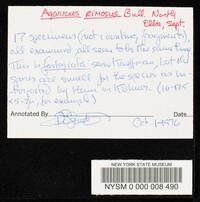 Agaricus rimosus Bull. North
Elba, Sept.
17 specimens (not counting fragments),
all examined all seem to be the same thing
This is fastigiata sensu Kauffman, but the
spores are small for the species as in-
terpreted by Heim in Kühner. (10-12.5
x 5-7µ, for example)
Annotated By
Date
Oct. 1976
NEW YORK STATE MUSEUM
NYSM 0 000 008 490